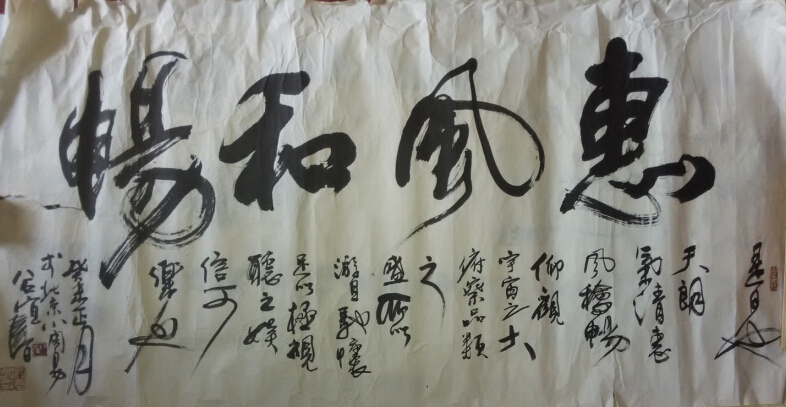 惠风和暢
是日也
天朗
氣清惠
風穐暢
仰觀
宇宙之大
俯察品類
之
盛所以
游目騁懷
足以極視
聽之娱
信可
樂也
癸未正月
於北京